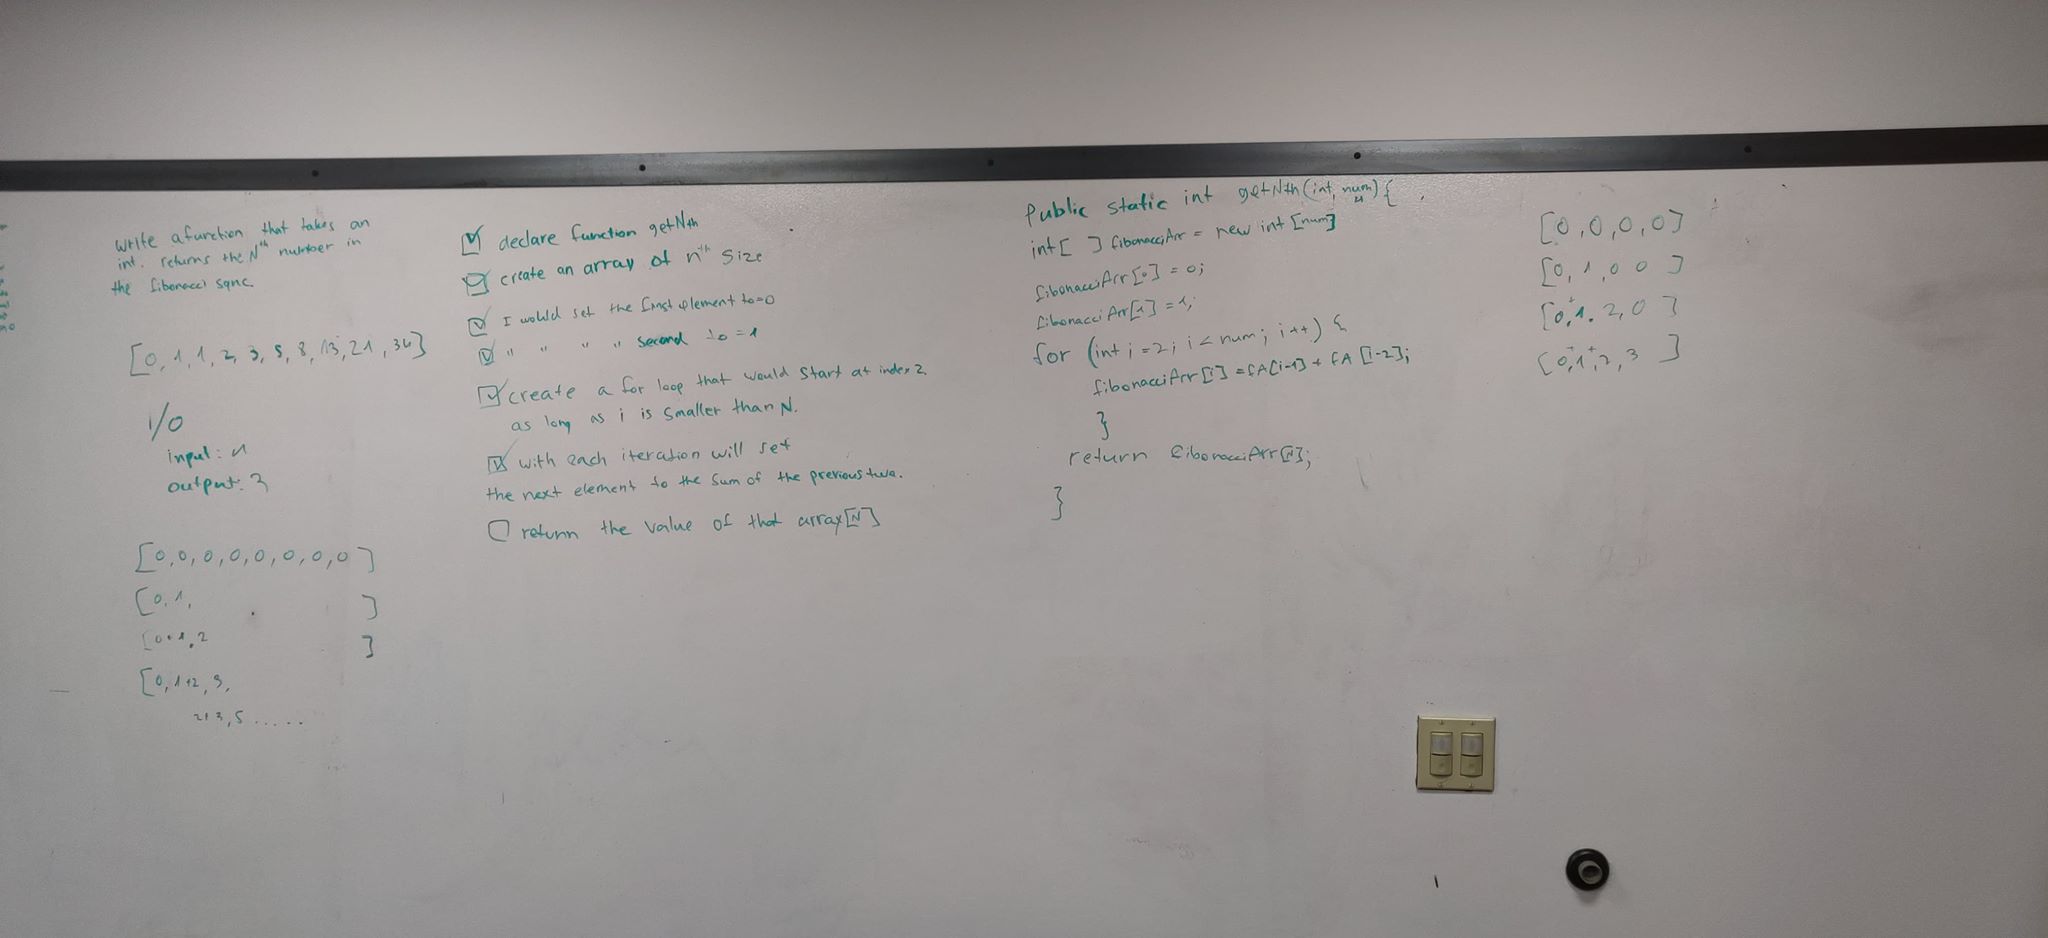 write a function that takes an
int. returns the Nth number in
the fibonacci sqnc.
[0, 1, 1, 2, 3, 5, 8, 13, 21, 34]
I/O
input: 4
output: 3
[0,0,0,0,0,0,0,0]
[0,1, ]
[0+1,2 ]
[0,1+2,3,
2+3,5.....
declare function getNth
create an array of nth size
I would set the first element to=0
" " " " second to =1
create a for loop that would start at index 2,
as long as i is smaller than N.
with each iteration will set
the next element to the sum of the previous two.
return the value of that array[N]
Public static int getNth(int num){
4
int[ ] fibonacciArr = new int[num]
fibonacciArr[0] = 0;
fibonacciArr[1] = 1;
for (int i=2; i < num; i++) {
fibonacciArr[i] = fA[i-1] + fA[i-2];
}
return fibonacciArr[N];
}
[0,0,0,0]
[0,1,0 0 ]
[0,+1,2,0 ]
[0,+1,+2,3 ]